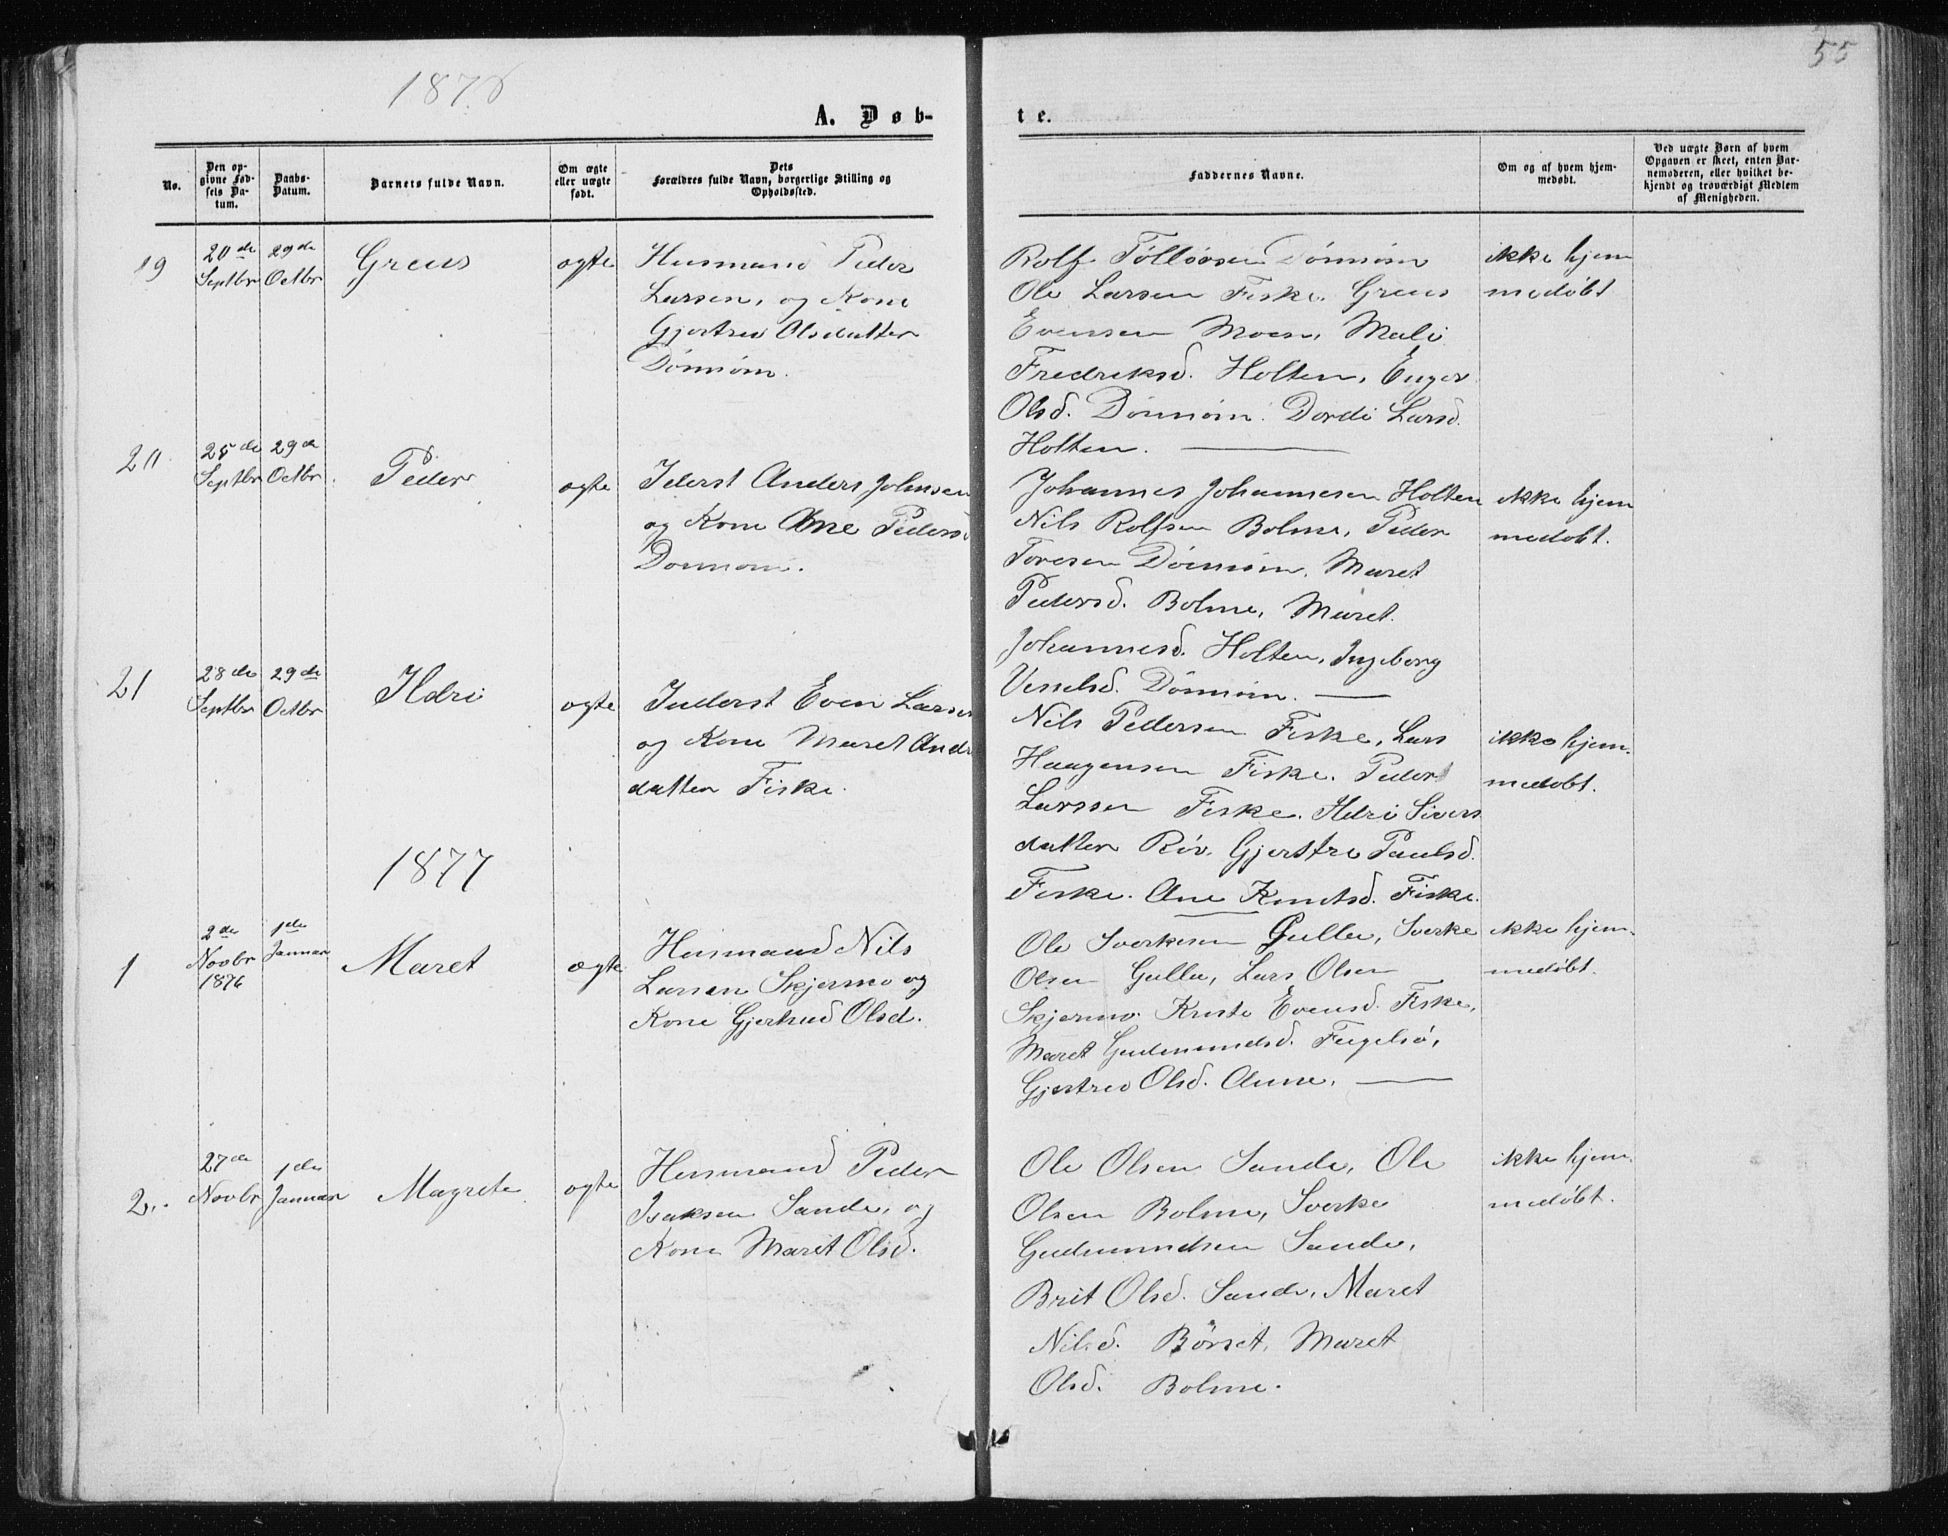 1876
55
A. Døb-
te.
No.
Den op-
givne Fød-
sels Da-
tum.
Daabs-
Datum.
Barnets fulde Navn.
Om ægte
eller uægte
født.
Dets
Forældres fulde Navn, borgerlige Stilling og
Opholdssted.
Faddernes Navne.
Om og af hvem hjem-
medøbt.
Ved uægte Børn af hvem
Opgaven er skeet, enten Bar-
nemoderen, eller hvilket be-
kjendt og troværdigt Medlem
af Menigheden.
19
20de
Septbr
29de
Octbr
Greus
ægte
Husmand Peder
Larsen, og Kone
Gjertrud Olsdatter
Dønnøm.
Rolf Dønnøm
Ole Larsen Fiske. Greus
Evensen Moen, Mali
Fredriksd. Holten,
Olsd. Dønnøm. Dordi Larsd.
Holten.
ikke hjem
medøbt
20
25de
Septbr
29de
Octbr
Peder
ægte
Iderst Anders Johnsen
og Kone Ane Peders
Dønnøm.
Johannes Johannesen Holten
Nils Rolfsen Bolme, Peder
Toresen Dønnøm, Maret
Pedersd. Bolme, Maret
Johannesd. Holten, Ingeborg
Dønnøm.
ikke hjem
medøbt.
21
28de
Septbr
29de
Octbr
Ildri
ægte
Inderst Even Larsen
og Kone Maret And
datter Fiske.
Nils Pedersen Fiske, Lars
Haagensen Fiske. Peder
Larssen Fiske. Ildri Sivers
datter Røv. Gjertru Paulsd.
Fiske. Ane Knutsd. Fiske.
ikke hjem-
medøbt.
1877
1
2de
Novbr
1876
1de
Januar
Maret
ægte
Husmand Nils
Larsen Skjermo og
Kone Gjertrud Olsd.
Ole Sverkesen Gulla, Sverke
Olsen Gulla, Lars Olsen
Skjermo. Kristi Evensd. Fiske,
Maret Gudmundsd. Fugelsø,
Gjertrud Olsd. Aune.
ikke hjem-
medøbt.
2.
27de
Novbr
1de
Januar
Magrete
ægte
Husmand Peder
Isaksen Sande, og
Kone Marit Olsd.
Ole Olsen Sande, Ole
Olsen Bolme, Sverke
Gudmundsen Sande,
Brit Olsd. Sande, Maret
Nilsd. Børset, Maret
Olsd. Bolme.
ikke hjem-
medøbt.